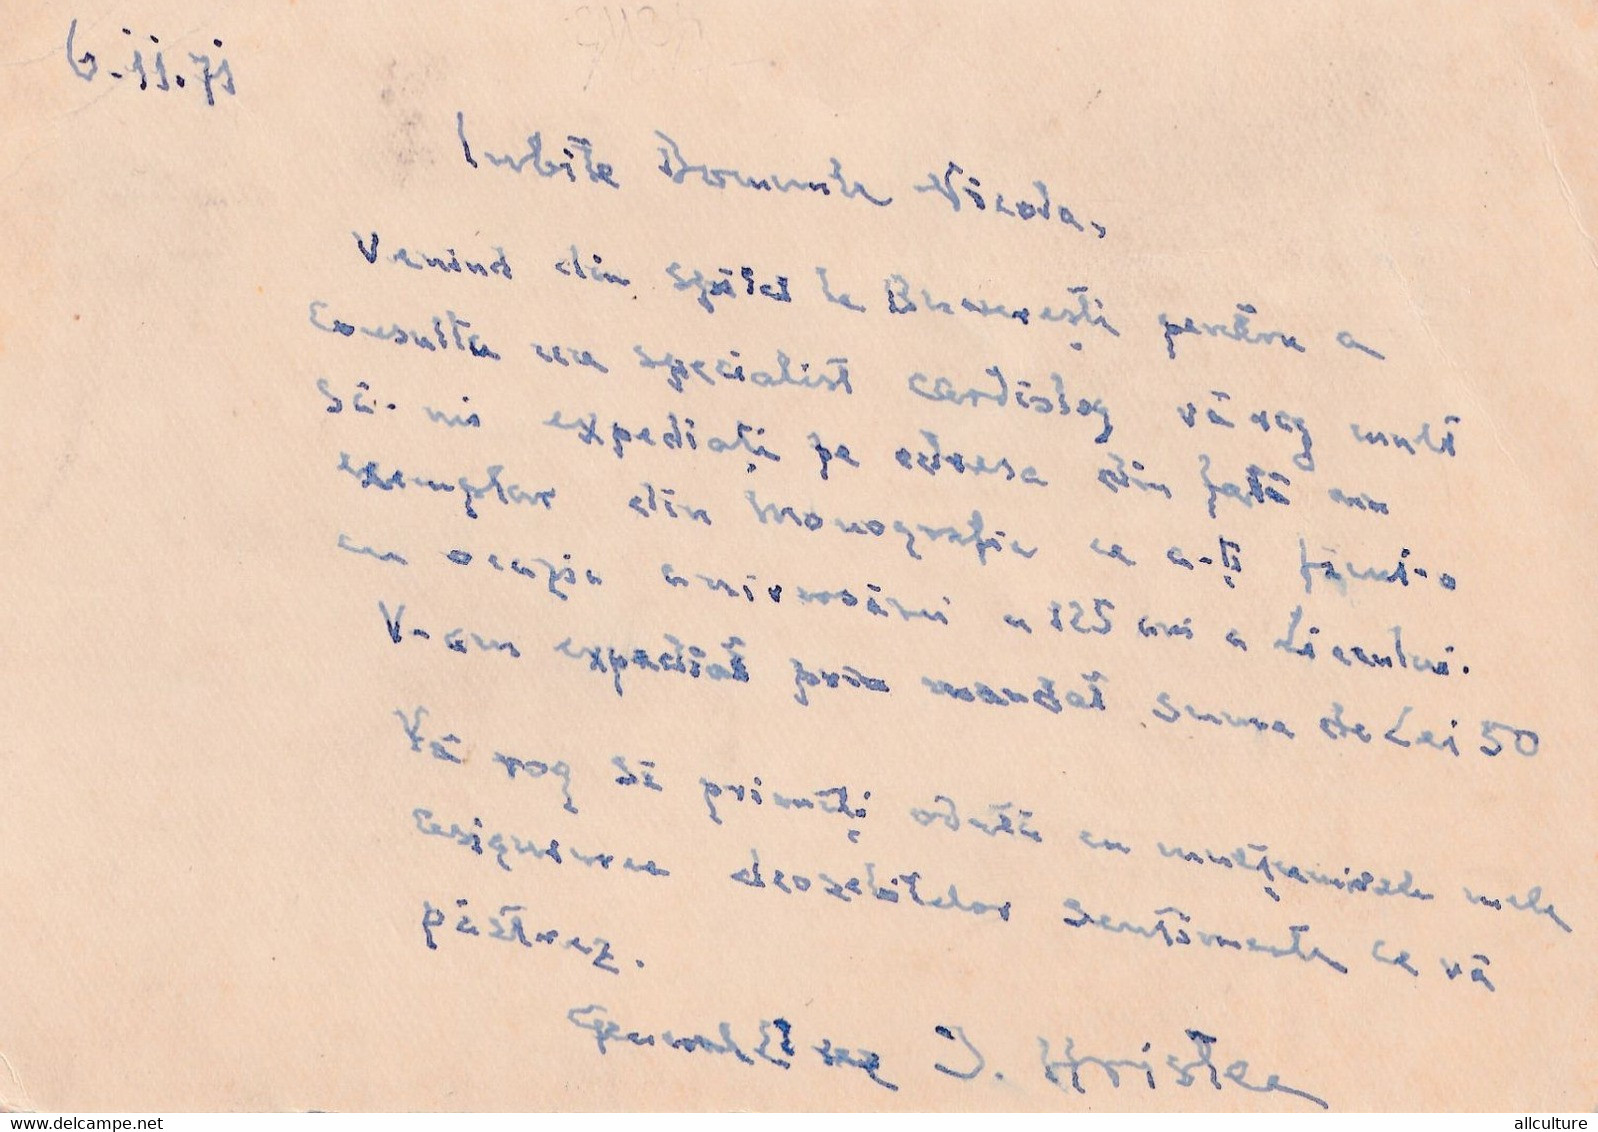 6.II.71
Iubite Domnule Nicola,
Venind din spital la București pentru a
consulta un specialist cardiolog vă rog mult
să-mi expediați pe adresa din față un
exemplar din monografia ce a-ți făcut-o
cu ocazia aniversării a 125 ani a Liceului.
V-am expediat prin mandat suma de Lei 50
Vă rog să primiți odată cu mulțumirile mele
asigurarea deosebitelor sentimente ce vă
păstrez.
General I. Hristea
allculture